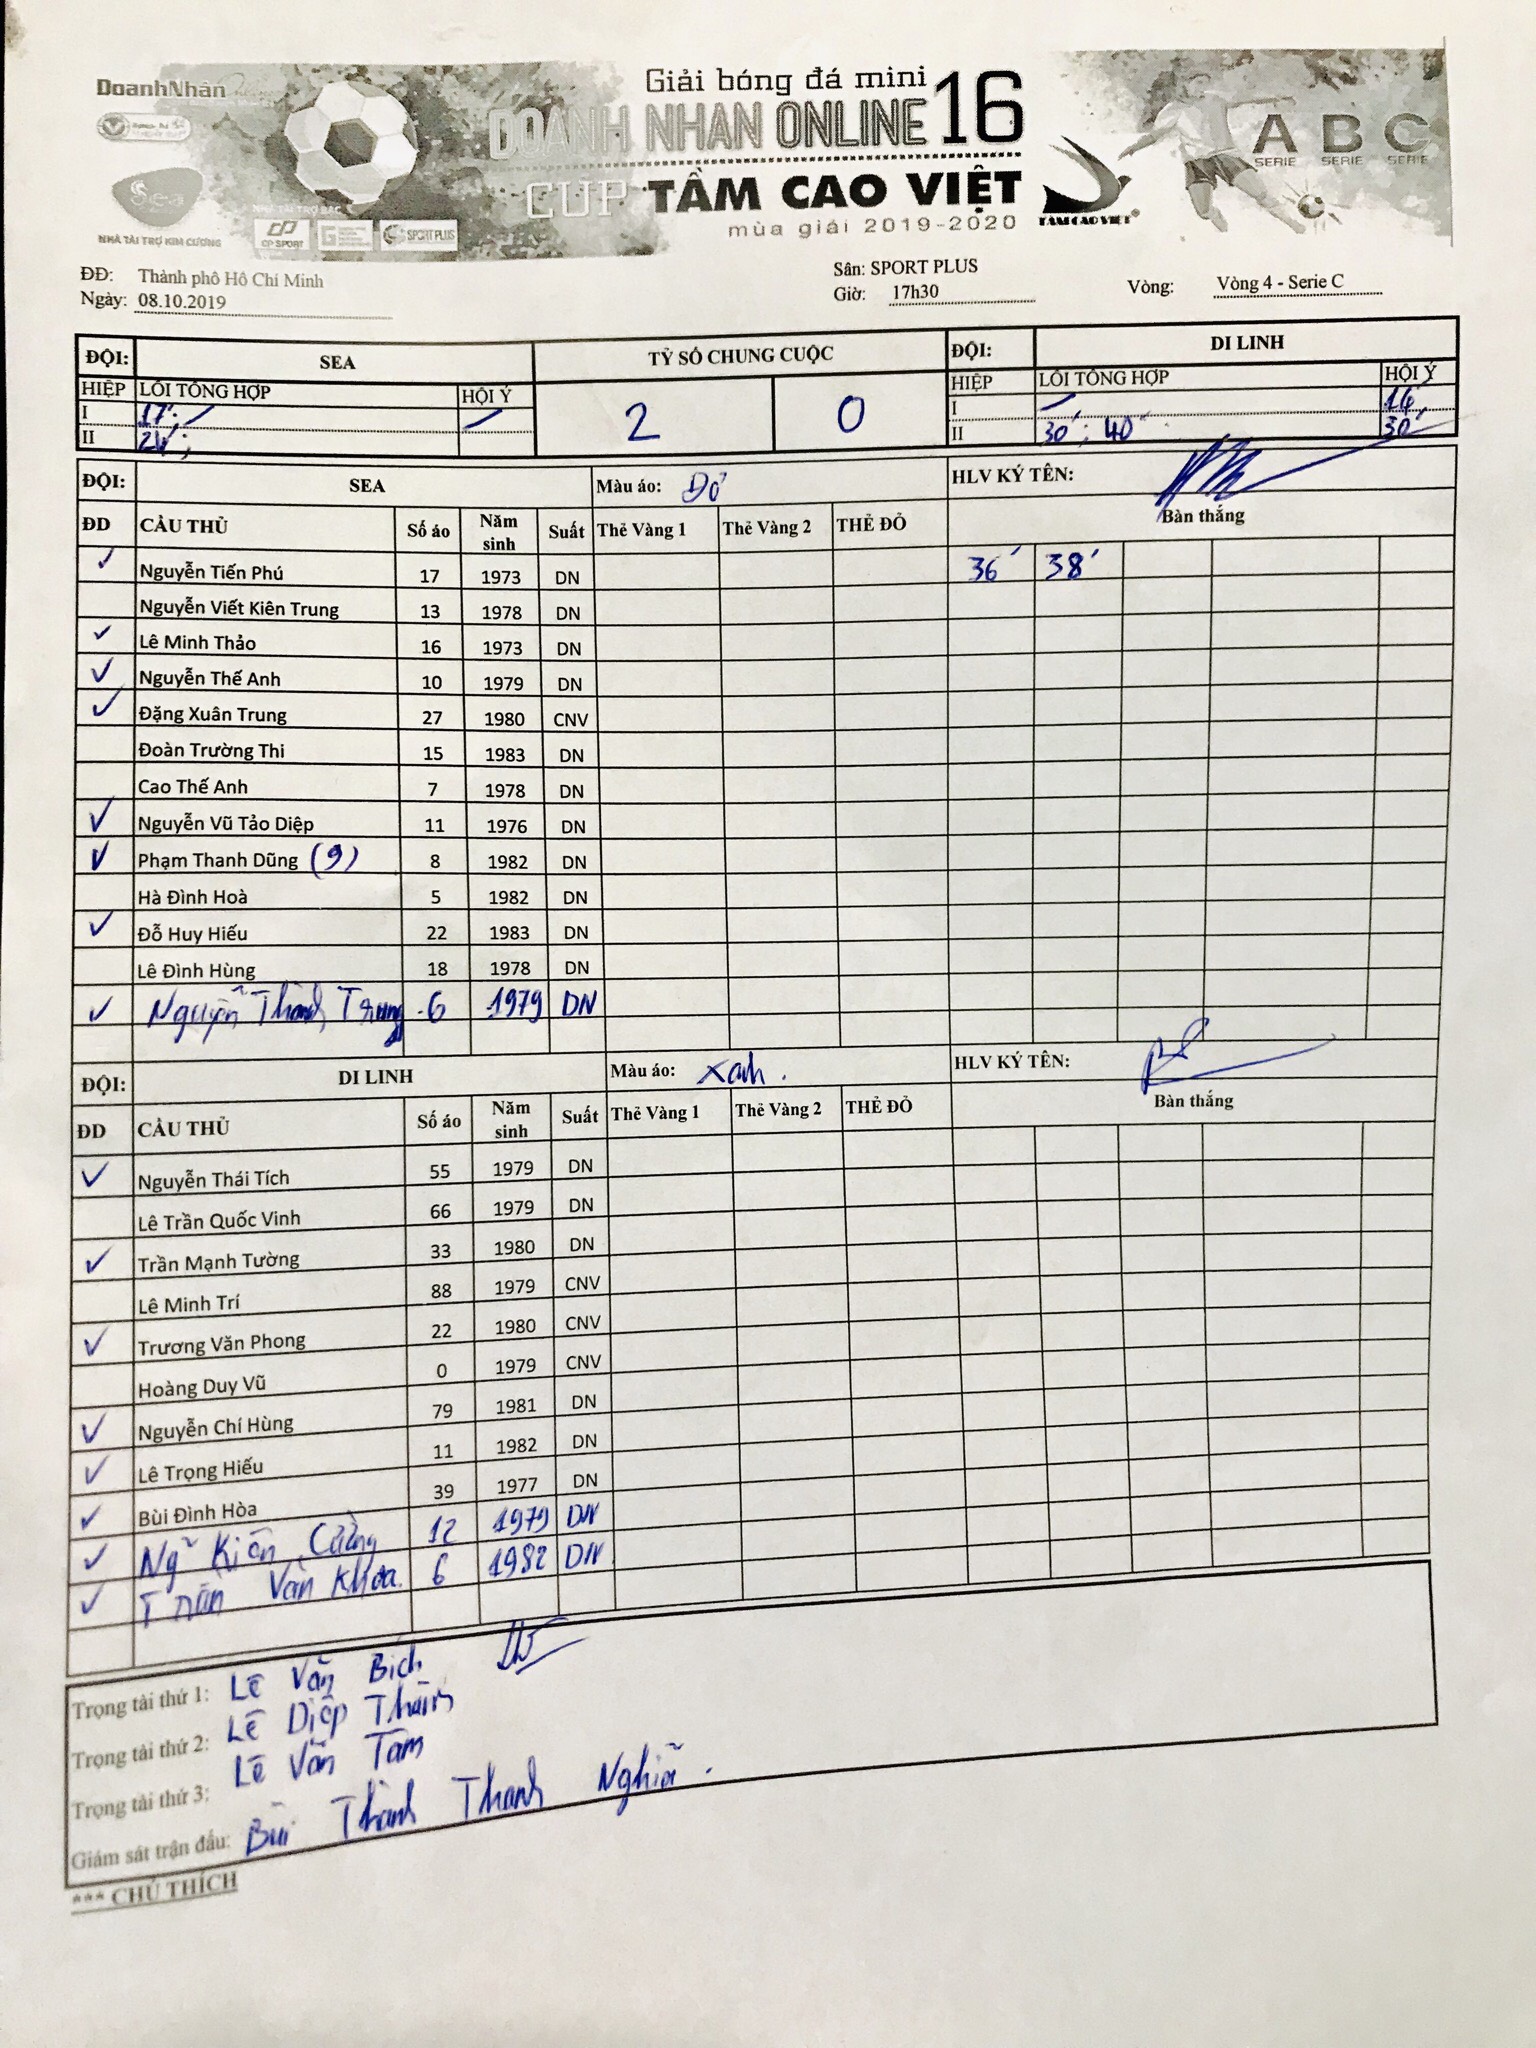 DoanhNhân
Giải bóng đá mini
DOANH NHAN ONLINE 16
CUP TẦM CAO VIỆT
mùa giải 2019-2020
TẦM CAO VIỆT
A B C
SERIE SERIE SERIE
Sea
NHÀ TÀI TRỢ KIM CƯƠNG
NHÀ TÀI TRỢ BẠC
CP SPORT
SPORT PLUS
ĐĐ: Thành phô Hô Chí Minh
Sân: SPORT PLUS
Ngày: 08.10.2019
Giờ: 17h30
Vòng: Vòng 4 - Serie C
ĐỘI: SEA TỶ SỐ CHUNG CUỘC ĐỘI: DI LINH
HIỆP LỖI TỔNG HỢP HỘI Ý 2 0 HIỆP LỖI TỔNG HỢP HỘI Ý
I 17'; / / I / 14'
II 24'; II 30'; 40' 30'
ĐỘI: SEA Màu áo: Đỏ HLV KÝ TÊN:
ĐD CẦU THỦ Số áo Năm sinh Suất Thẻ Vàng 1 Thẻ Vàng 2 THẺ ĐỎ Bàn thắng
✓ Nguyễn Tiến Phú 17 1973 DN 36' 38'
Nguyễn Viết Kiên Trung 13 1978 DN
✓ Lê Minh Thảo 16 1973 DN
✓ Nguyễn Thế Anh 10 1979 DN
✓ Đặng Xuân Trung 27 1980 CNV
Đoàn Trường Thi 15 1983 DN
Cao Thế Anh 7 1978 DN
✓ Nguyễn Vũ Tảo Diệp 11 1976 DN
✓ Phạm Thanh Dũng (9) 8 1982 DN
Hà Đình Hoà 5 1982 DN
✓ Đỗ Huy Hiếu 22 1983 DN
Lê Đình Hùng 18 1978 DN
✓ Nguyễn Thành Trung 6 1979 DN
ĐỘI: DI LINH Màu áo: Xanh. HLV KÝ TÊN:
ĐD CẦU THỦ Số áo Năm sinh Suất Thẻ Vàng 1 Thẻ Vàng 2 THẺ ĐỎ Bàn thắng
✓ Nguyễn Thái Tích 55 1979 DN
Lê Trần Quốc Vinh 66 1979 DN
✓ Trần Mạnh Tường 33 1980 DN
Lê Minh Trí 88 1979 CNV
✓ Trương Văn Phong 22 1980 CNV
Hoàng Duy Vũ 0 1979 CNV
✓ Nguyễn Chí Hùng 79 1981 DN
✓ Lê Trọng Hiếu 11 1982 DN
✓ Bùi Đình Hòa 39 1977 DN
✓ Ng~ Kiên Cường 12 1979 DN
✓ Trần Văn Khoa. 6 1982 DN
Trọng tài thứ 1: Lê Văn Bích
Trọng tài thứ 2: Lê Diệp Thành
Trọng tài thứ 3: Lê Văn Tam
Giám sát trận đấu: Bùi Thành Thanh Nghĩa.
*** CHÚ THÍCH